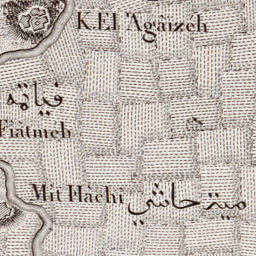 K. El A'gâïzéh
فياتمه
Fiatmeh
Mit Hâchi
ميت حاشي